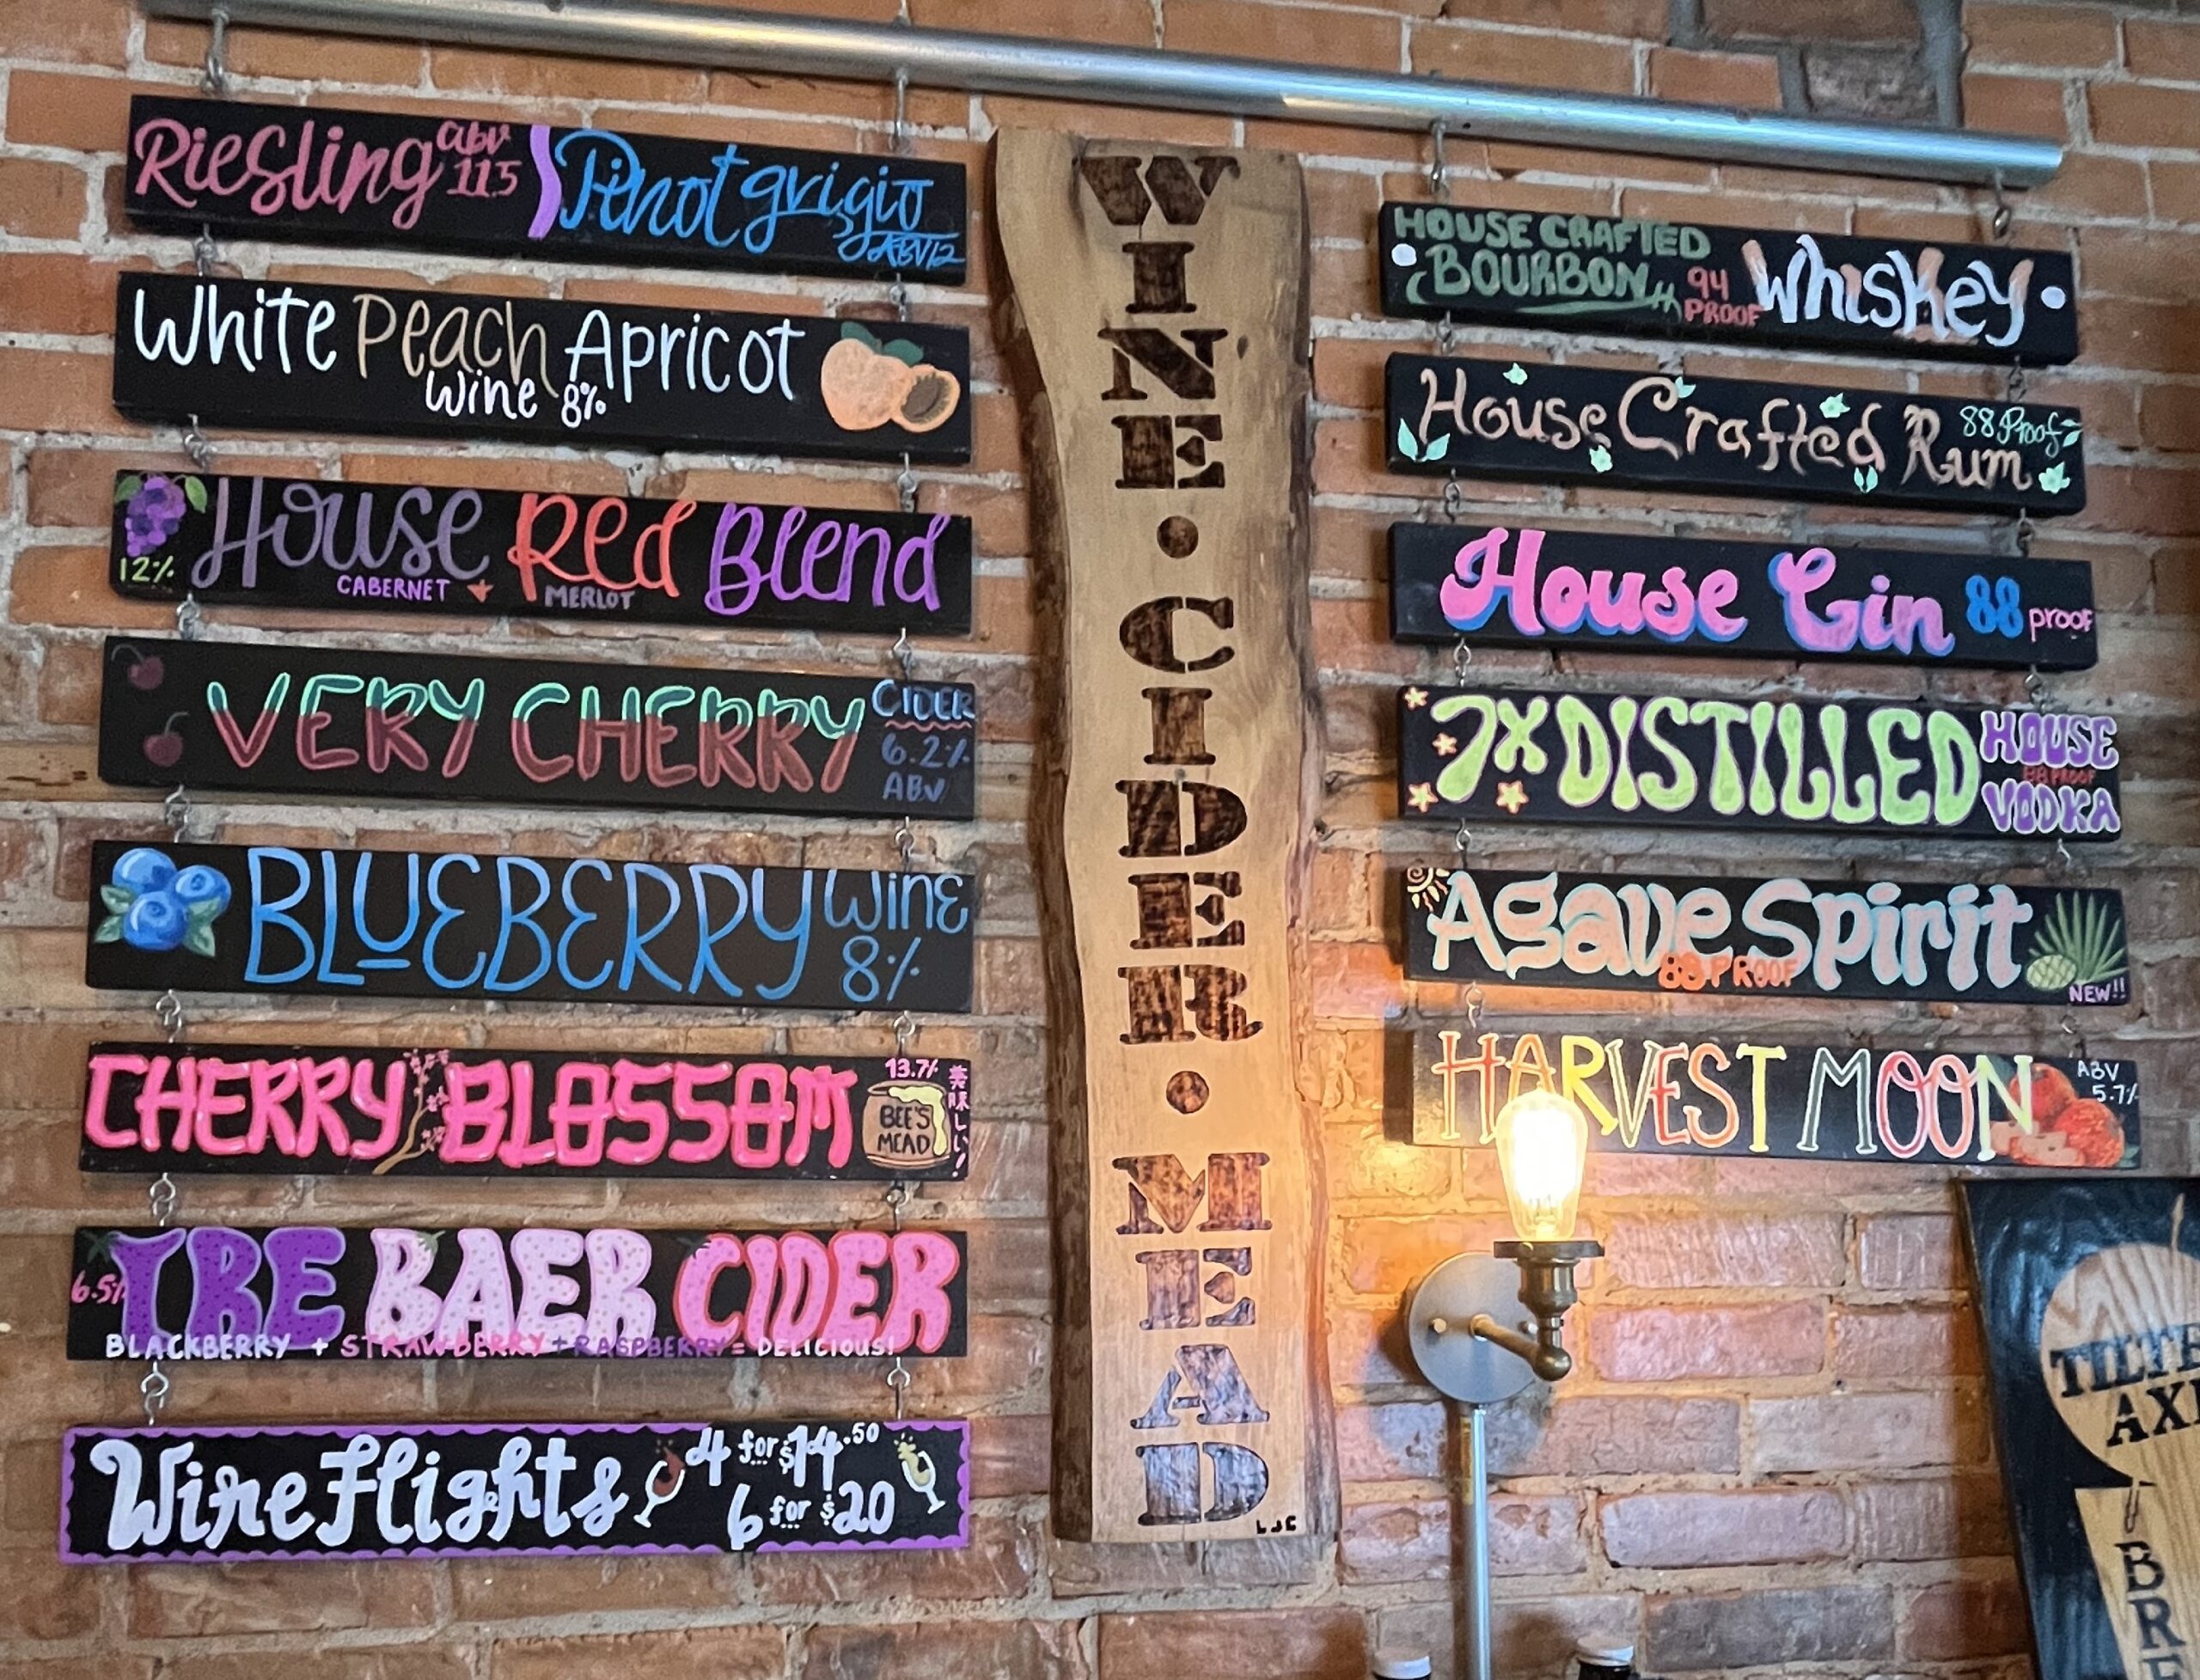 Riesling abv 11.5 Pinot grigio ABV 12
White Peach Apricot
Wine 8%
House Red Blend
12% CABERNET + MERLOT
VERY CHERRY CIDER
6.2%
ABV
BLUEBERRY Wine
8%
CHERRY BLOSSOM 13.7%
BEE'S
MEAD
美味しい!
TRE BAER CIDER
6.5%
BLACKBERRY + STRAWBERRY + RASPBERRY = DELICIOUS!
Wine Flights 4 for $14.50
6 for $20
WINE • CIDER • MEAD
LJC
HOUSE CRAFTED
BOURBON 94 PROOF Whiskey
House Crafted Rum 88 Proof
House Gin 88 proof
7X DISTILLED HOUSE
88 PROOF
VODKA
Agave Spirit
88 PROOF
NEW!!
HARVEST MOON ABV
5.7%
AXE